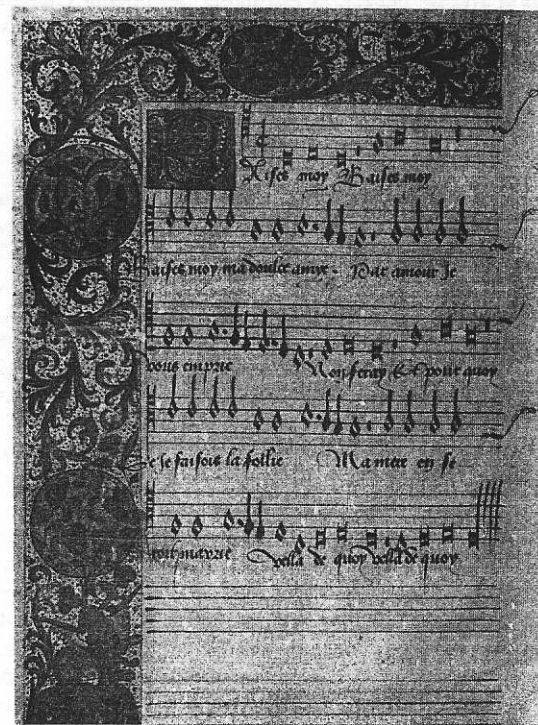 Baises moy Baises moy
Baises moy ma doulce amye. Par amour Je
vous em prie Non feray Et pour quoy
Se Je faisois la follie Ma mere en se
roit marrie Vella de quoy vella de quoy